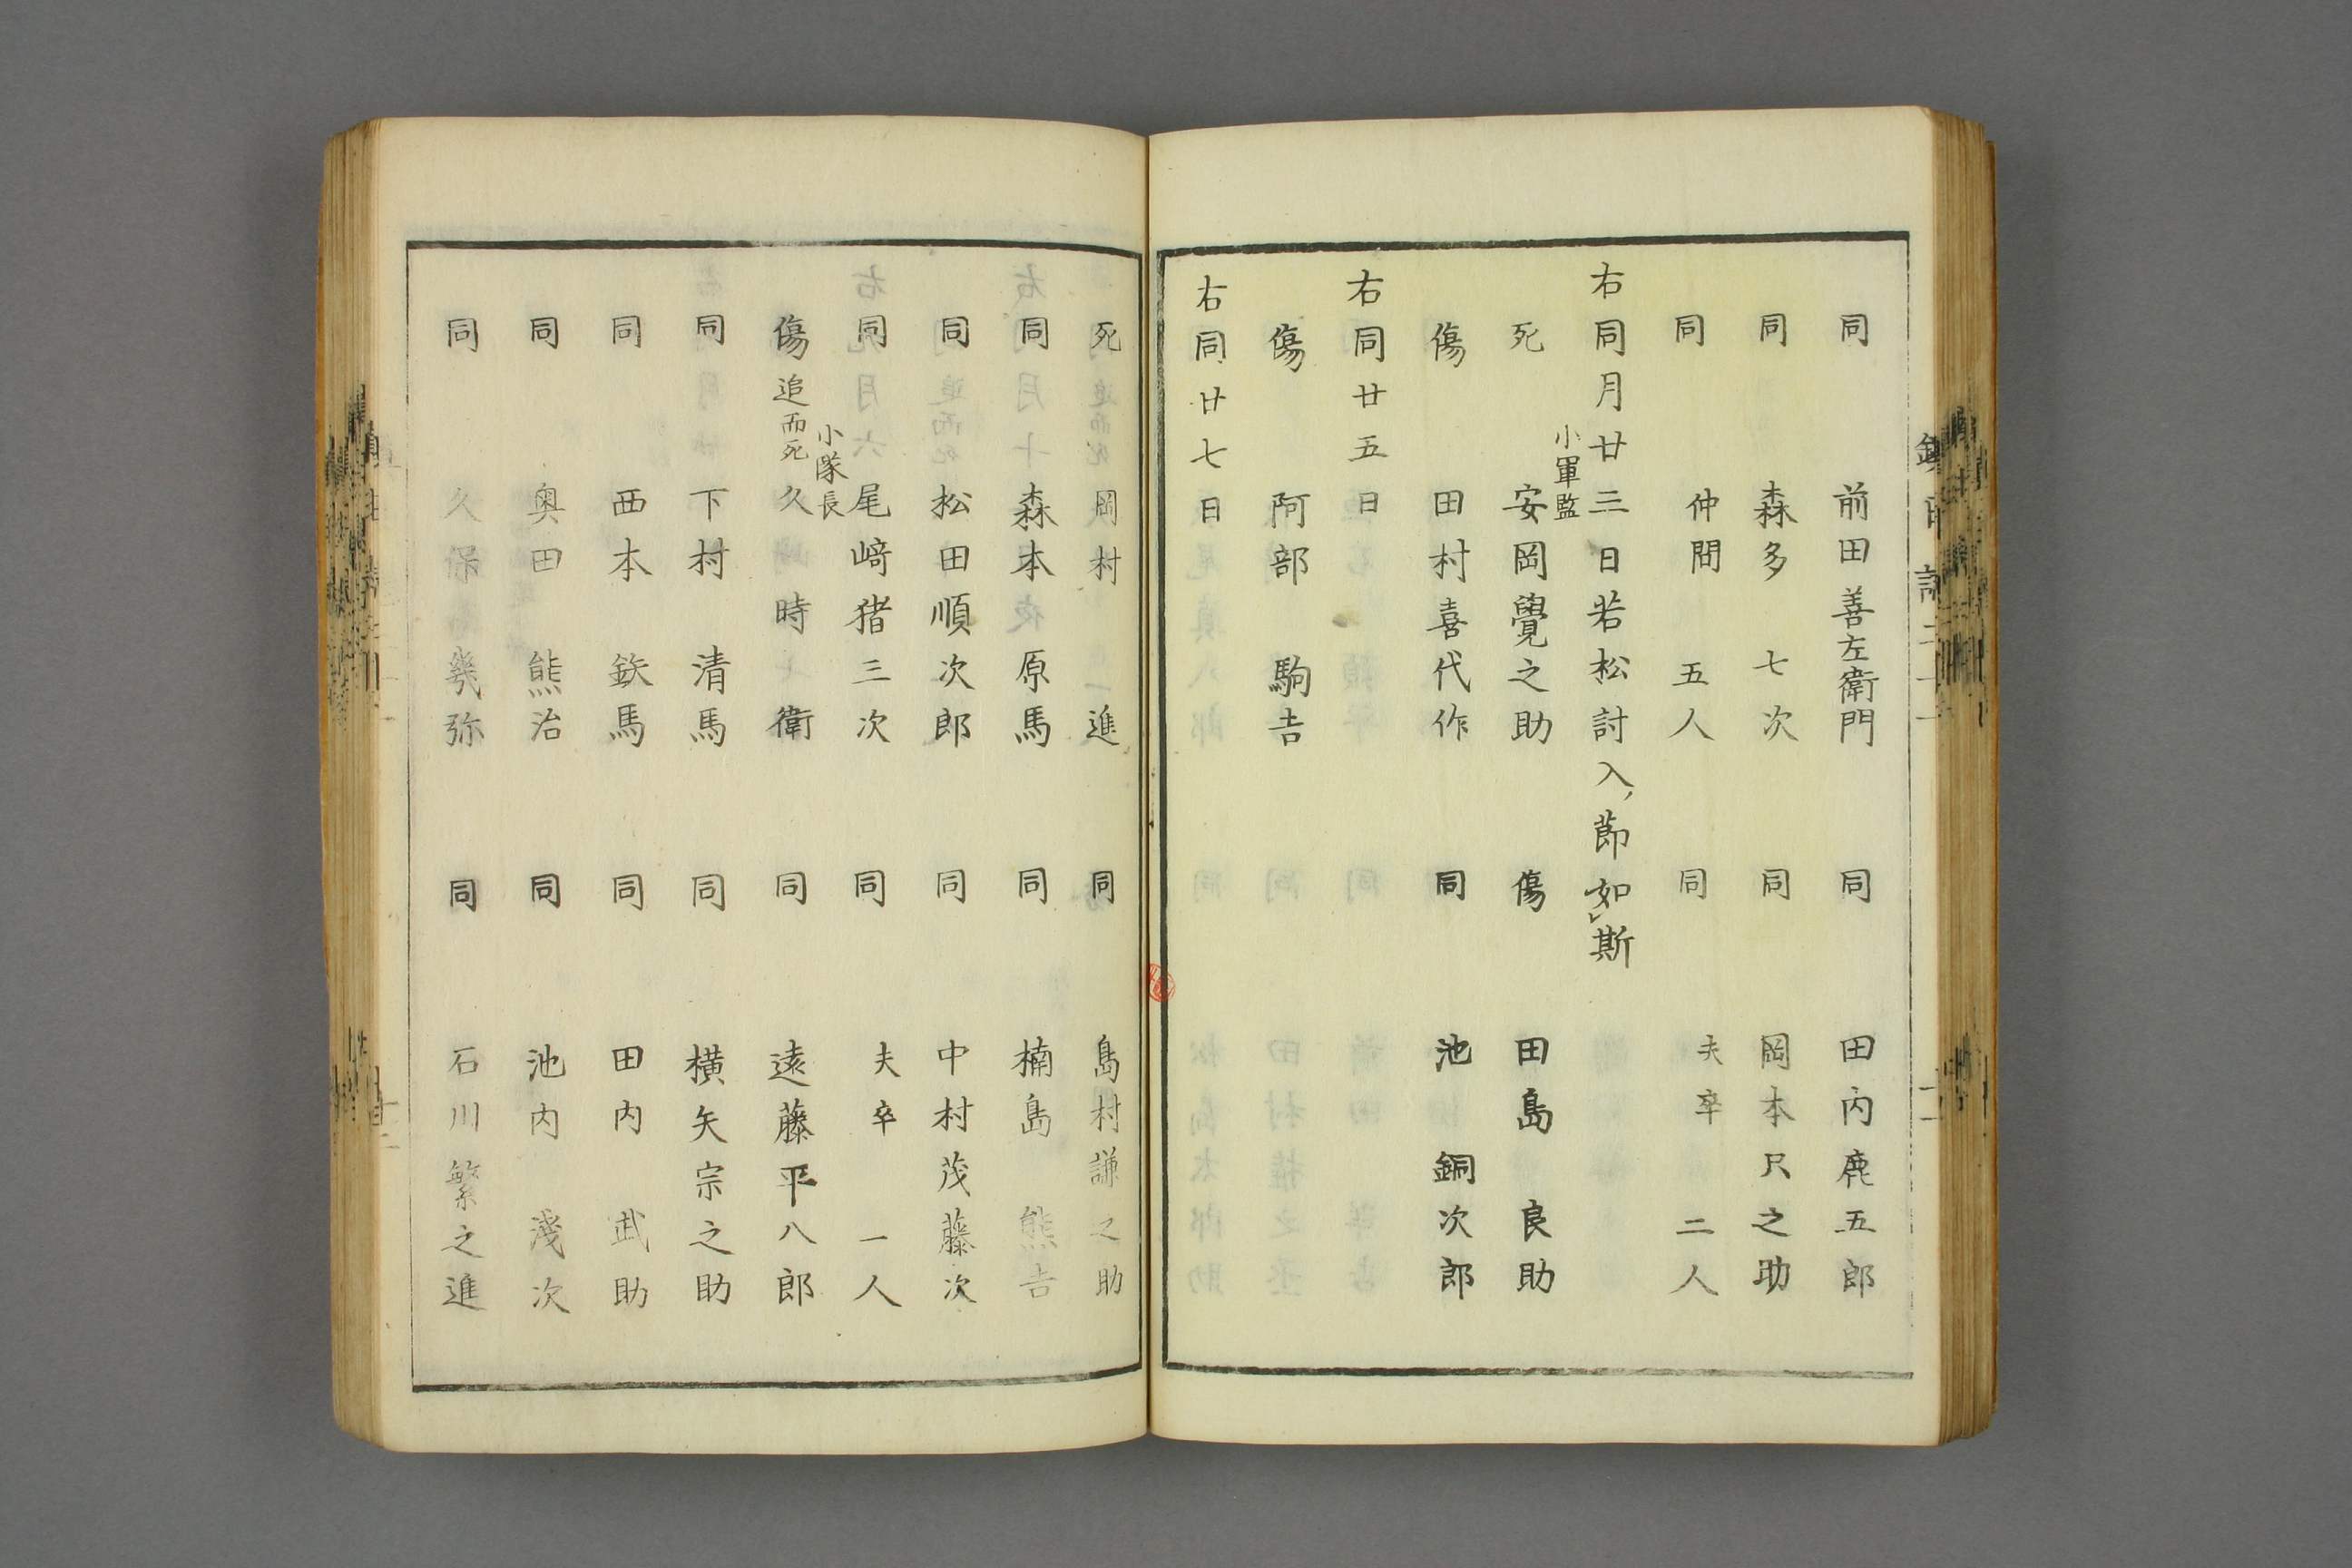 同 前田善左衛門 同 田内鹿五郎
同 森多七次 同 岡本尺之助
同 仲間五人 同 夫卒二人
右同月廿三日若松討入ノ節如レ斯
死 小軍監 安岡覺之助 傷 田島良助
傷 田村喜代作 同 池銅次郎
右同廿五日
傷 阿部駒吉
右同廿七日
死 岡村進 同 島村謙之助
同 森本原馬 同 楠島熊吉
同 松田順次郎 同 中村茂藤次
同 小隊長 尾﨑猪三次 同 夫卒一人
傷 追而死 久時衛 同 遠藤平八郎
同 下村清馬 同 横矢宗之助
同 西本鉃馬 同 田内武助
同 奥田熊治 同 池内淺次
同 久保幾弥 同 石川繁之進